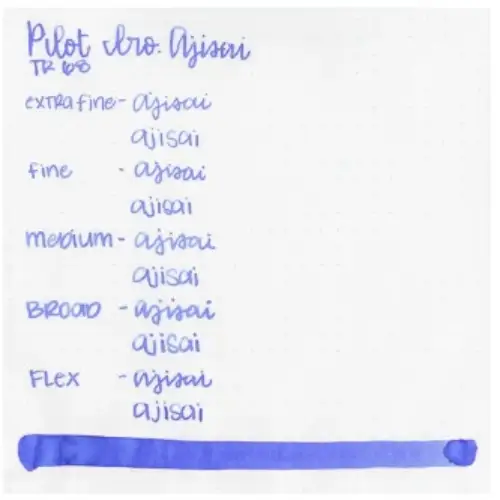 Pilot Iro. Ajisai
TR 68
extra fine - ajisai
ajisai
fine - ajisai
ajisai
medium - ajisai
ajisai
BROAD - ajisai
ajisai
FLEX - ajisai
ajisai